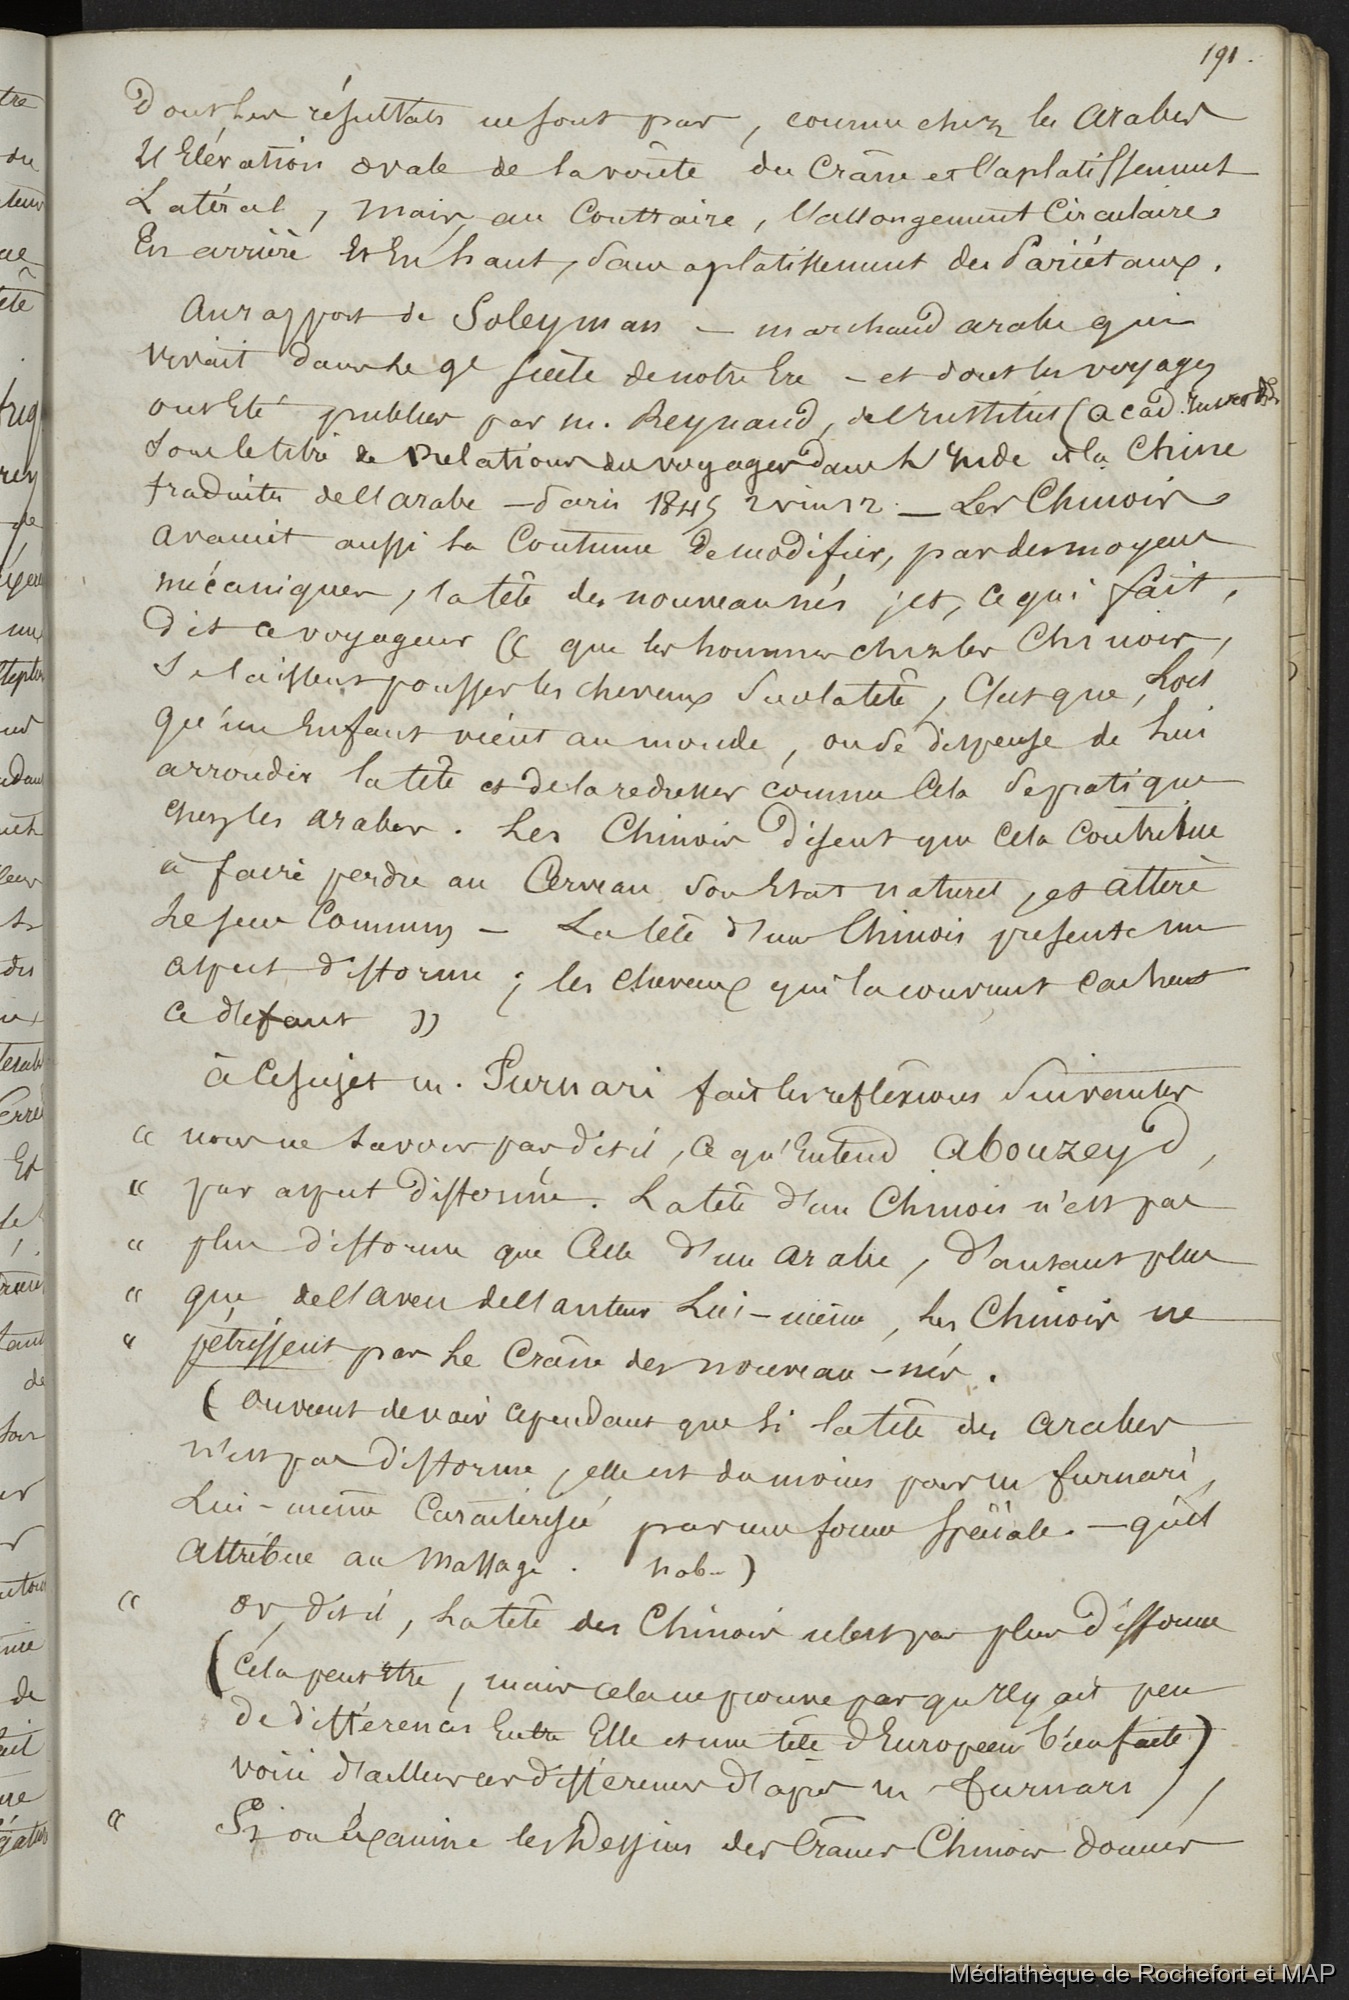 191.
Dont les résultats ne sont pas, comme chez les arabes
L'Elévation ovale de la voûte du Crâne et l'aplatissement
Latéral, mais, au Contraire, l'allongement Circulaire
En arrière Et En haut, sans aplatissement des Pariétaux.
au rapport de Soleyman – marchand arabe qui
vivait dans le 9e siècle de notre Ere – et dont les voyages
ont Eté publiés par m. Reynaud, de l'Institut (acad.
sous le titre de Relations des voyages dans l'Inde et la Chine
traduites de l'arabe – Paris 1845 2 v in 12 – Les Chinois
avaient aussi la Coutume de modifier, par des moyens
mécaniques, la tête des nouveaux nés ; et, ce qui fait,
dit ce voyageur « que les hommes chez les Chinois,
se laissent pousser les cheveux sur la tête, C'est que, Lors
qu'un Enfant vient au monde, on se dispense de Lui
arrondir la tête et de la redresser comme Cela se pratique
chez les arabes. Les Chinois disent que Cela Contribue
à faire perdre au Cerveau son Etat naturel, et altère
Le sens Commun – La tête d'un Chinois présente un
aspect difforme ; les cheveux qui la couvrent cachent
ce défaut »
à Ce sujet m. Furnari fait les réflexions Suivantes
« nous ne savons pas dit il, ce qu'Entend Abouzeyd,
« par aspect difforme. La tête d'un Chinois n'est pas
« plus difforme que Celle d'un arabe, d'autant plus
« que de l'aveu de l'auteur Lui-même, les Chinois ne
« pétrissent pas Le Crâne des nouveau-nés.
(on vient de voir cependant que si la tête des arabes
n'est pas difforme, elle est du moins pour m furnari,
Lui-même Caractérisée par une forme spéciale. – qu'il
attribue au Massage. nob-)
« or, dit il, La tête des Chinois n'est pas plus difforme
(cela peut être, mais cela ne prouve pas qu'Il y ait peu
de différences Entre Elle et une tête d'Européen bien faite)
voici d'ailleurs ces différences d'après m furnari),
« Si on Examine les Dessins des Crânes Chinois donnés
Médiathèque de Rochefort et MAP